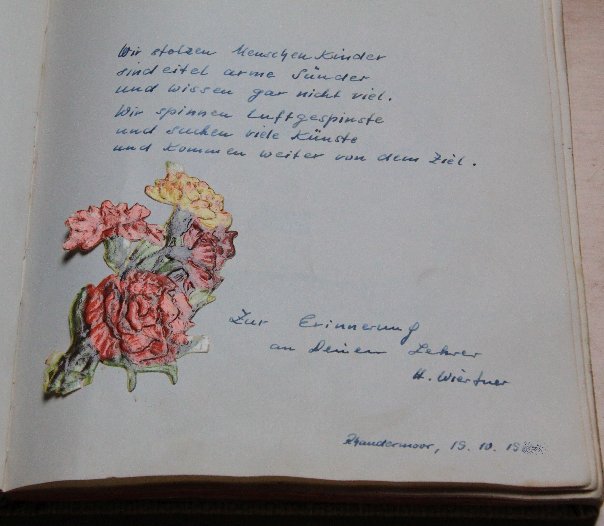 Wir stolzen Menschenkinder
sind eitel arme Sünder
und wissen gar nicht viel.
Wir spinnen Luftgespinste
und suchen viele Künste
und kommen weiter von dem Ziel.
Zur Erinnerung
an Deinen Lehrer
H.
15. 10. 19